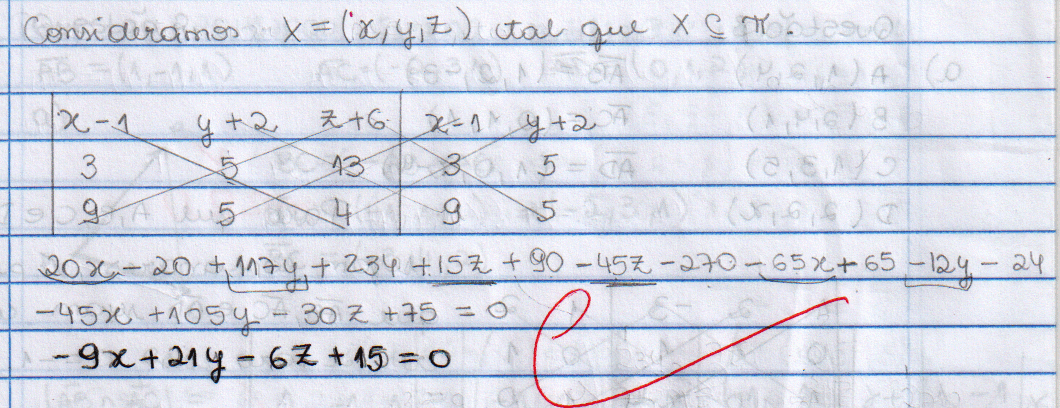 Consideramos X = (x, y, z) tal que X ⊆ π.
x - 1 y + 2 z + 6 x - 1 y + 2
3 5 13 3 5
9 5 4 9 5
20x - 20 + 117y + 234 + 15z + 90 - 45z - 270 - 65x + 65 - 12y - 24
-45x + 105y - 30z + 75 = 0
-9x + 21y - 6z + 15 = 0